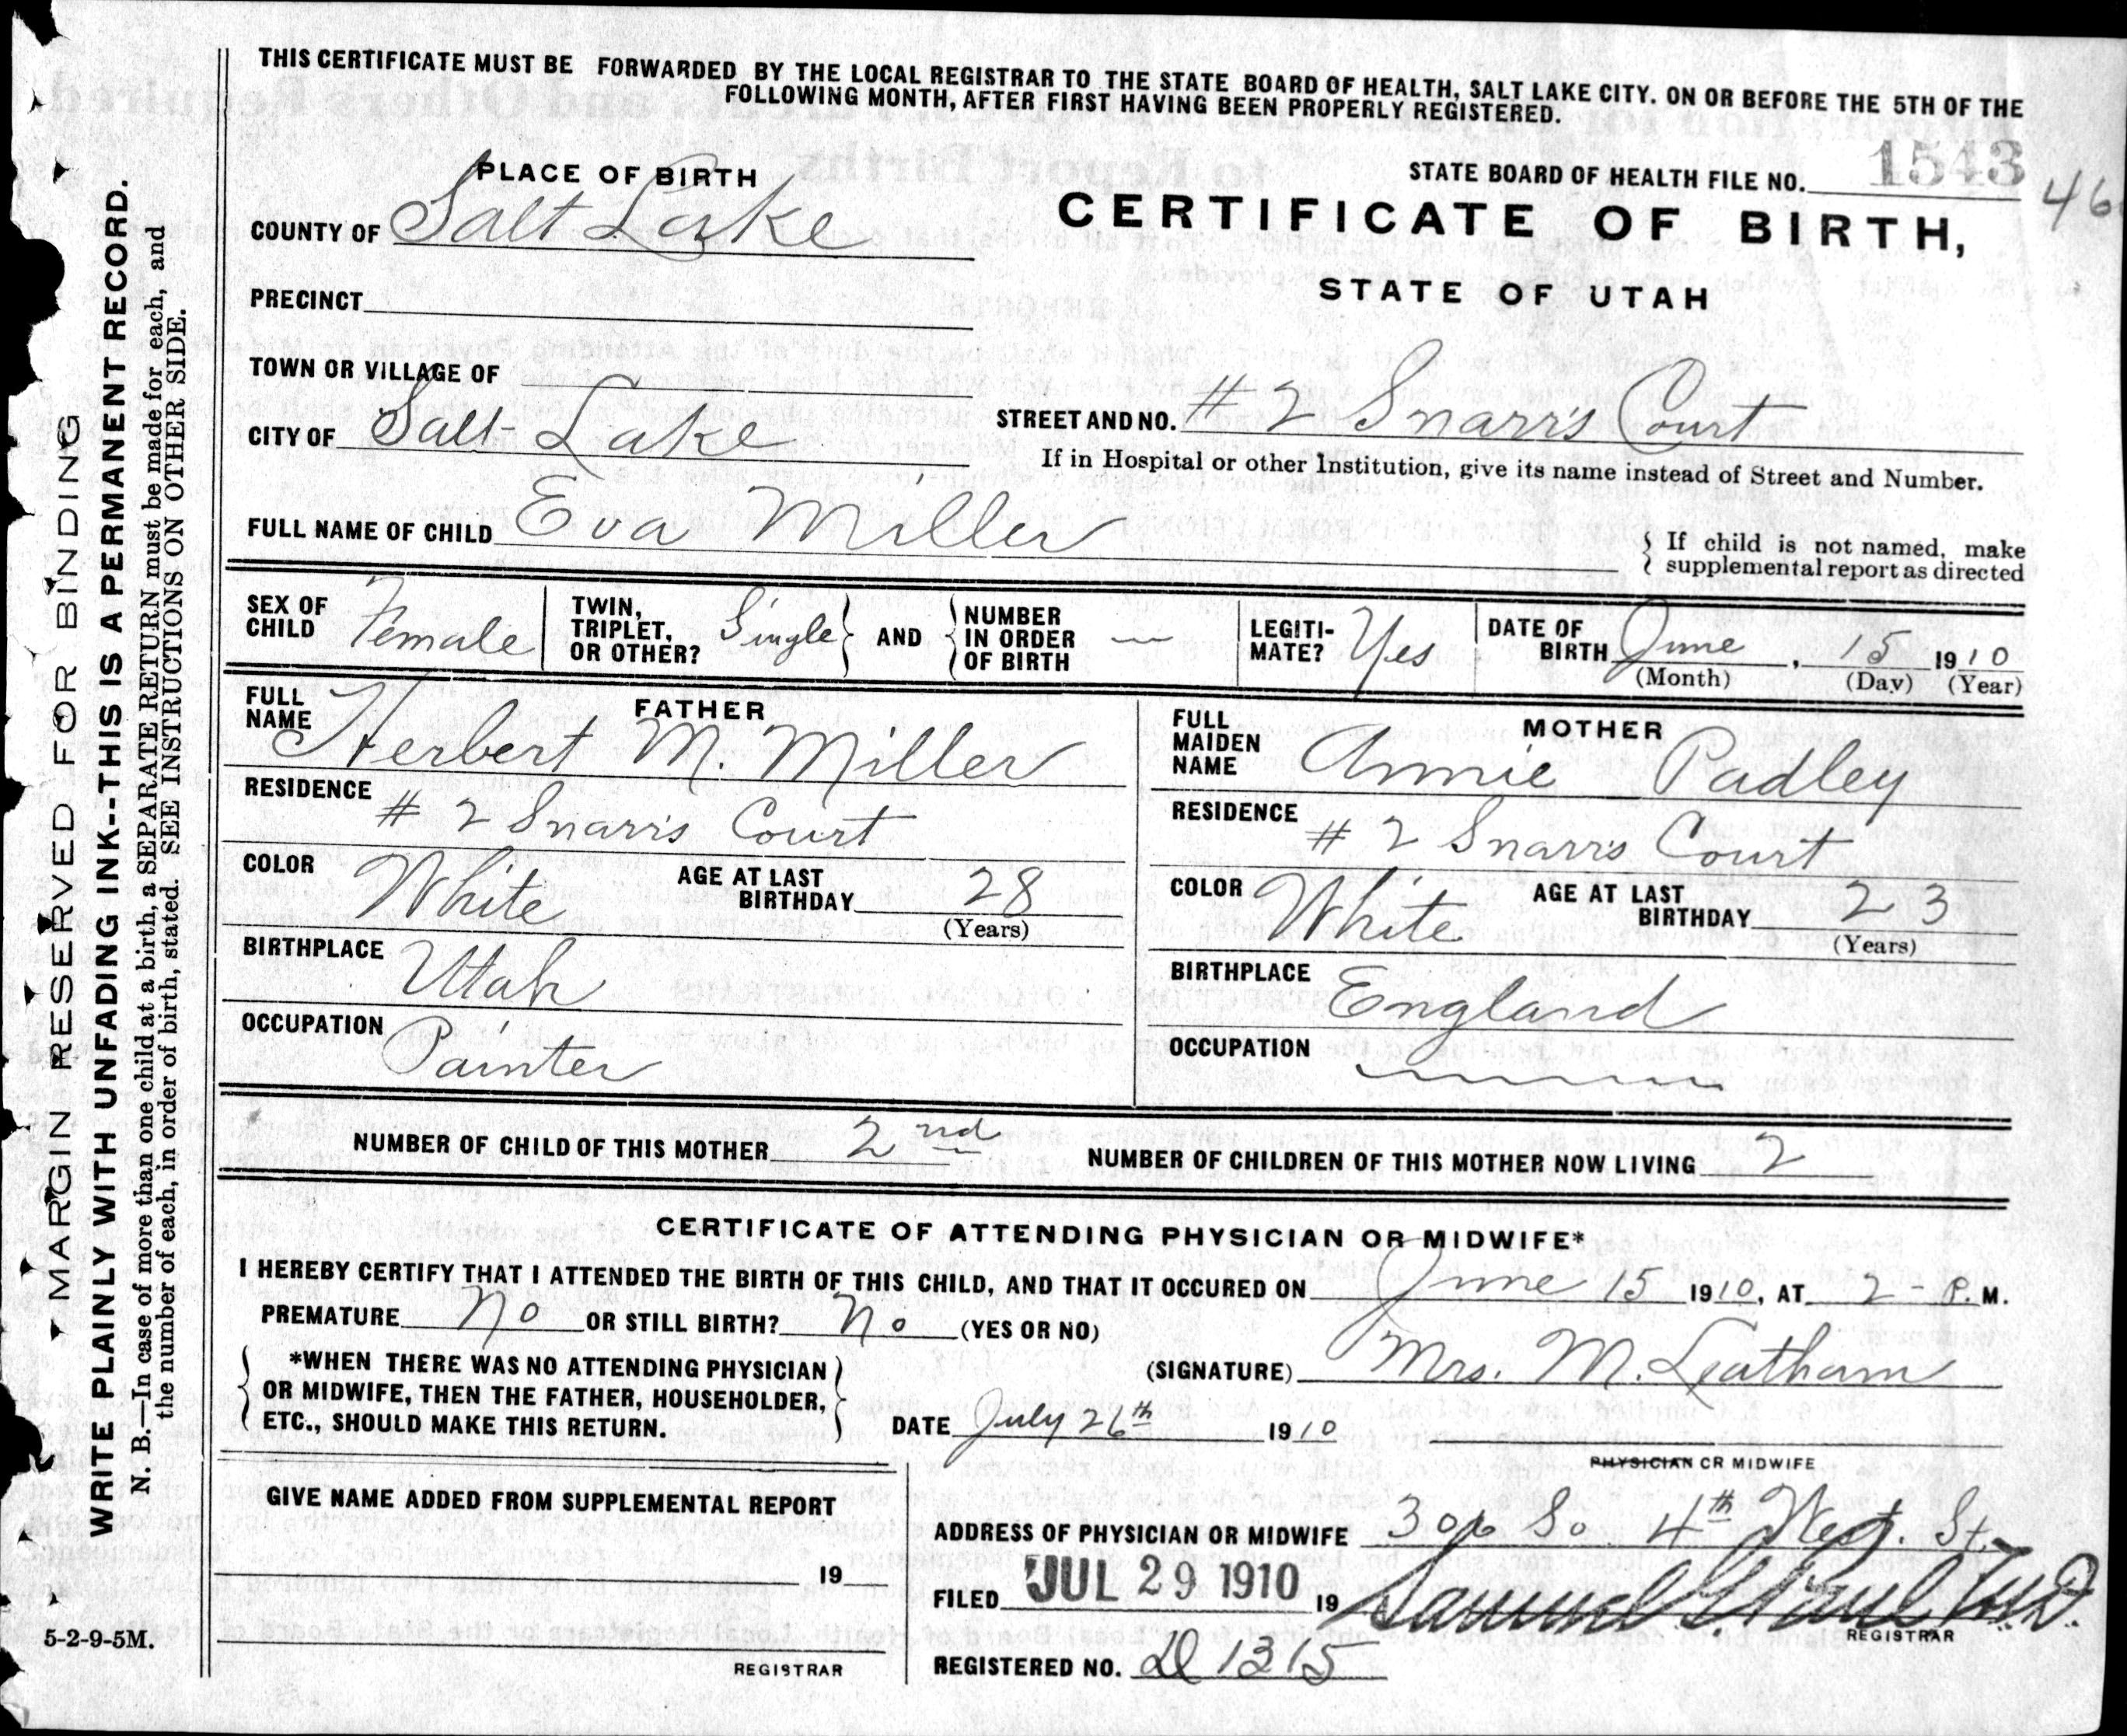 THIS CERTIFICATE MUST BE FORWARDED BY THE LOCAL REGISTRAR TO THE STATE BOARD OF HEALTH, SALT LAKE CITY. ON OR BEFORE THE 5TH OF THE
FOLLOWING MONTH, AFTER FIRST HAVING BEEN PROPERLY REGISTERED.
PLACE OF BIRTH
STATE BOARD OF HEALTH FILE NO. 1543 46
COUNTY OF Salt Lake
CERTIFICATE OF BIRTH,
STATE OF UTAH
PRECINCT
TOWN OR VILLAGE OF
CITY OF Salt Lake
STREET AND NO. # 2 Snarr's Court
If in Hospital or other Institution, give its name instead of Street and Number.
FULL NAME OF CHILD Eva Miller
If child is not named, make
supplemental report as directed
SEX OF
CHILD Female
TWIN,
TRIPLET,
OR OTHER? Single
AND
NUMBER
IN ORDER
OF BIRTH —
LEGITI-
MATE? Yes
DATE OF
BIRTH June, 15 1910
(Month) (Day) (Year)
FATHER
FULL
NAME Herbert M. Miller
RESIDENCE # 2 Snarr's Court
COLOR White
AGE AT LAST
BIRTHDAY 28
(Years)
BIRTHPLACE Utah
OCCUPATION Painter
MOTHER
FULL
MAIDEN
NAME Annie Padley
RESIDENCE # 2 Snarr's Court
COLOR White
AGE AT LAST
BIRTHDAY 23
(Years)
BIRTHPLACE England
OCCUPATION
NUMBER OF CHILD OF THIS MOTHER 2nd
NUMBER OF CHILDREN OF THIS MOTHER NOW LIVING 2
CERTIFICATE OF ATTENDING PHYSICIAN OR MIDWIFE*
I HEREBY CERTIFY THAT I ATTENDED THE BIRTH OF THIS CHILD, AND THAT IT OCCURED ON June 15 1910, AT 2 - P. M.
PREMATURE No OR STILL BIRTH? No (YES OR NO)
*WHEN THERE WAS NO ATTENDING PHYSICIAN
OR MIDWIFE, THEN THE FATHER, HOUSEHOLDER,
ETC., SHOULD MAKE THIS RETURN.
(SIGNATURE) Mrs. M. Leatham
DATE July 26th 1910
PHYSICIAN OR MIDWIFE
GIVE NAME ADDED FROM SUPPLEMENTAL REPORT
19
REGISTRAR
ADDRESS OF PHYSICIAN OR MIDWIFE So 4th West. St.
FILED JUL 29 1910 19 Samuel G. Paul M.D.
REGISTRAR
REGISTERED NO. D 1315
MARGIN RESERVED FOR BINDING
WRITE PLAINLY WITH UNFADING INK--THIS IS A PERMANENT RECORD.
N. B.—In case of more than one child at a birth, a SEPARATE RETURN must be made for each, and
the number of each, in order of birth, stated. SEE INSTRUCTIONS ON OTHER SIDE.
5-2-9-5M.